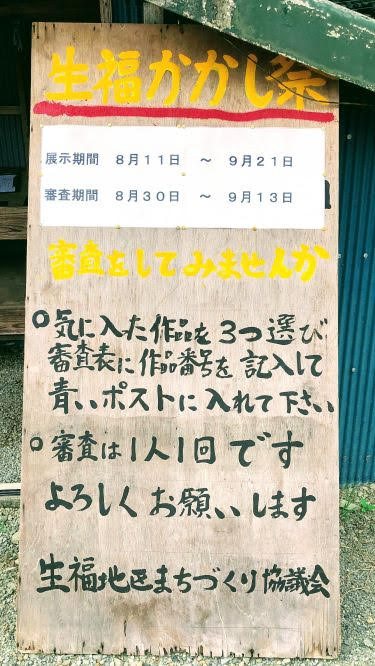 生福かかし祭
展示期間 8月11日 ～ 9月21日
審査期間 8月30日 ～ 9月13日
審査をしてみませんか
○気に入った作品を3つ選び
審査表に作品番号を記入して
青いポストに入れて下さい
○審査は1人1回です
よろしくお願いします
生福地区まちづくり協議会